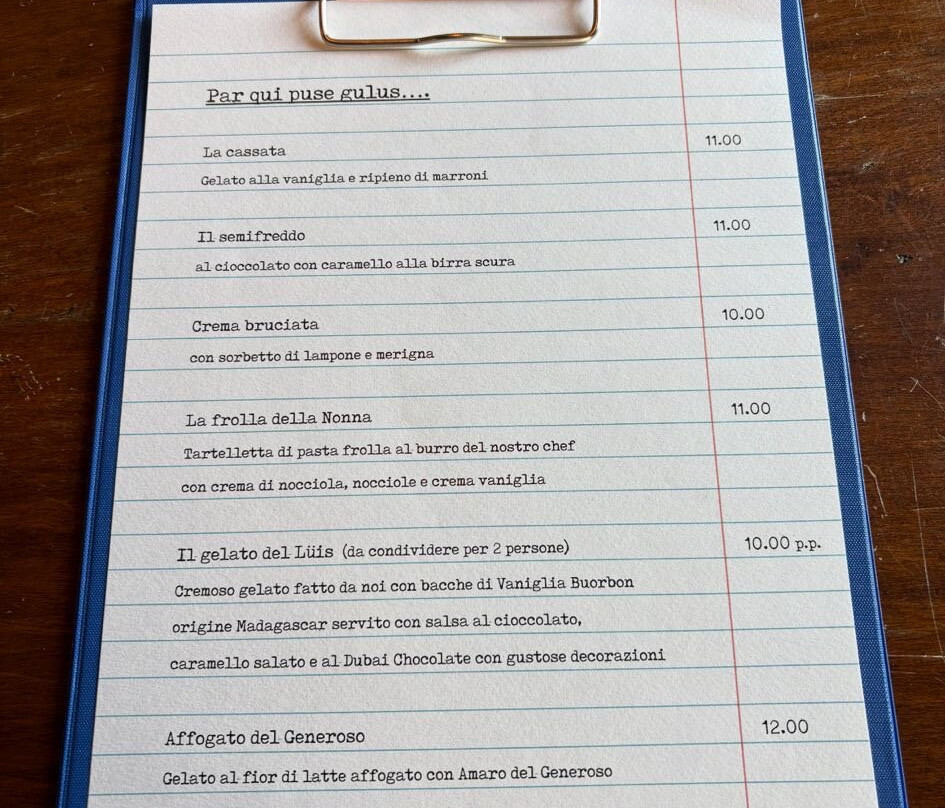 Par qui puse gulus....
La cassata 11.00
Gelato alla vaniglia e ripieno di marroni
Il semifreddo 11.00
al cioccolato con caramello alla birra scura
Crema bruciata 10.00
con sorbetto di lampone e merigna
La frolla della Nonna 11.00
Tartelletta di pasta frolla al burro del nostro chef
con crema di nocciola, nocciole e crema vaniglia
Il gelato del Lüis (da condividere per 2 persone) 10.00 p.p.
Cremoso gelato fatto da noi con bacche di Vaniglia Buorbon
origine Madagascar servito con salsa al cioccolato,
caramello salato e al Dubai Chocolate con gustose decorazioni
Affogato del Generoso 12.00
Gelato al fior di latte affogato con Amaro del Generoso